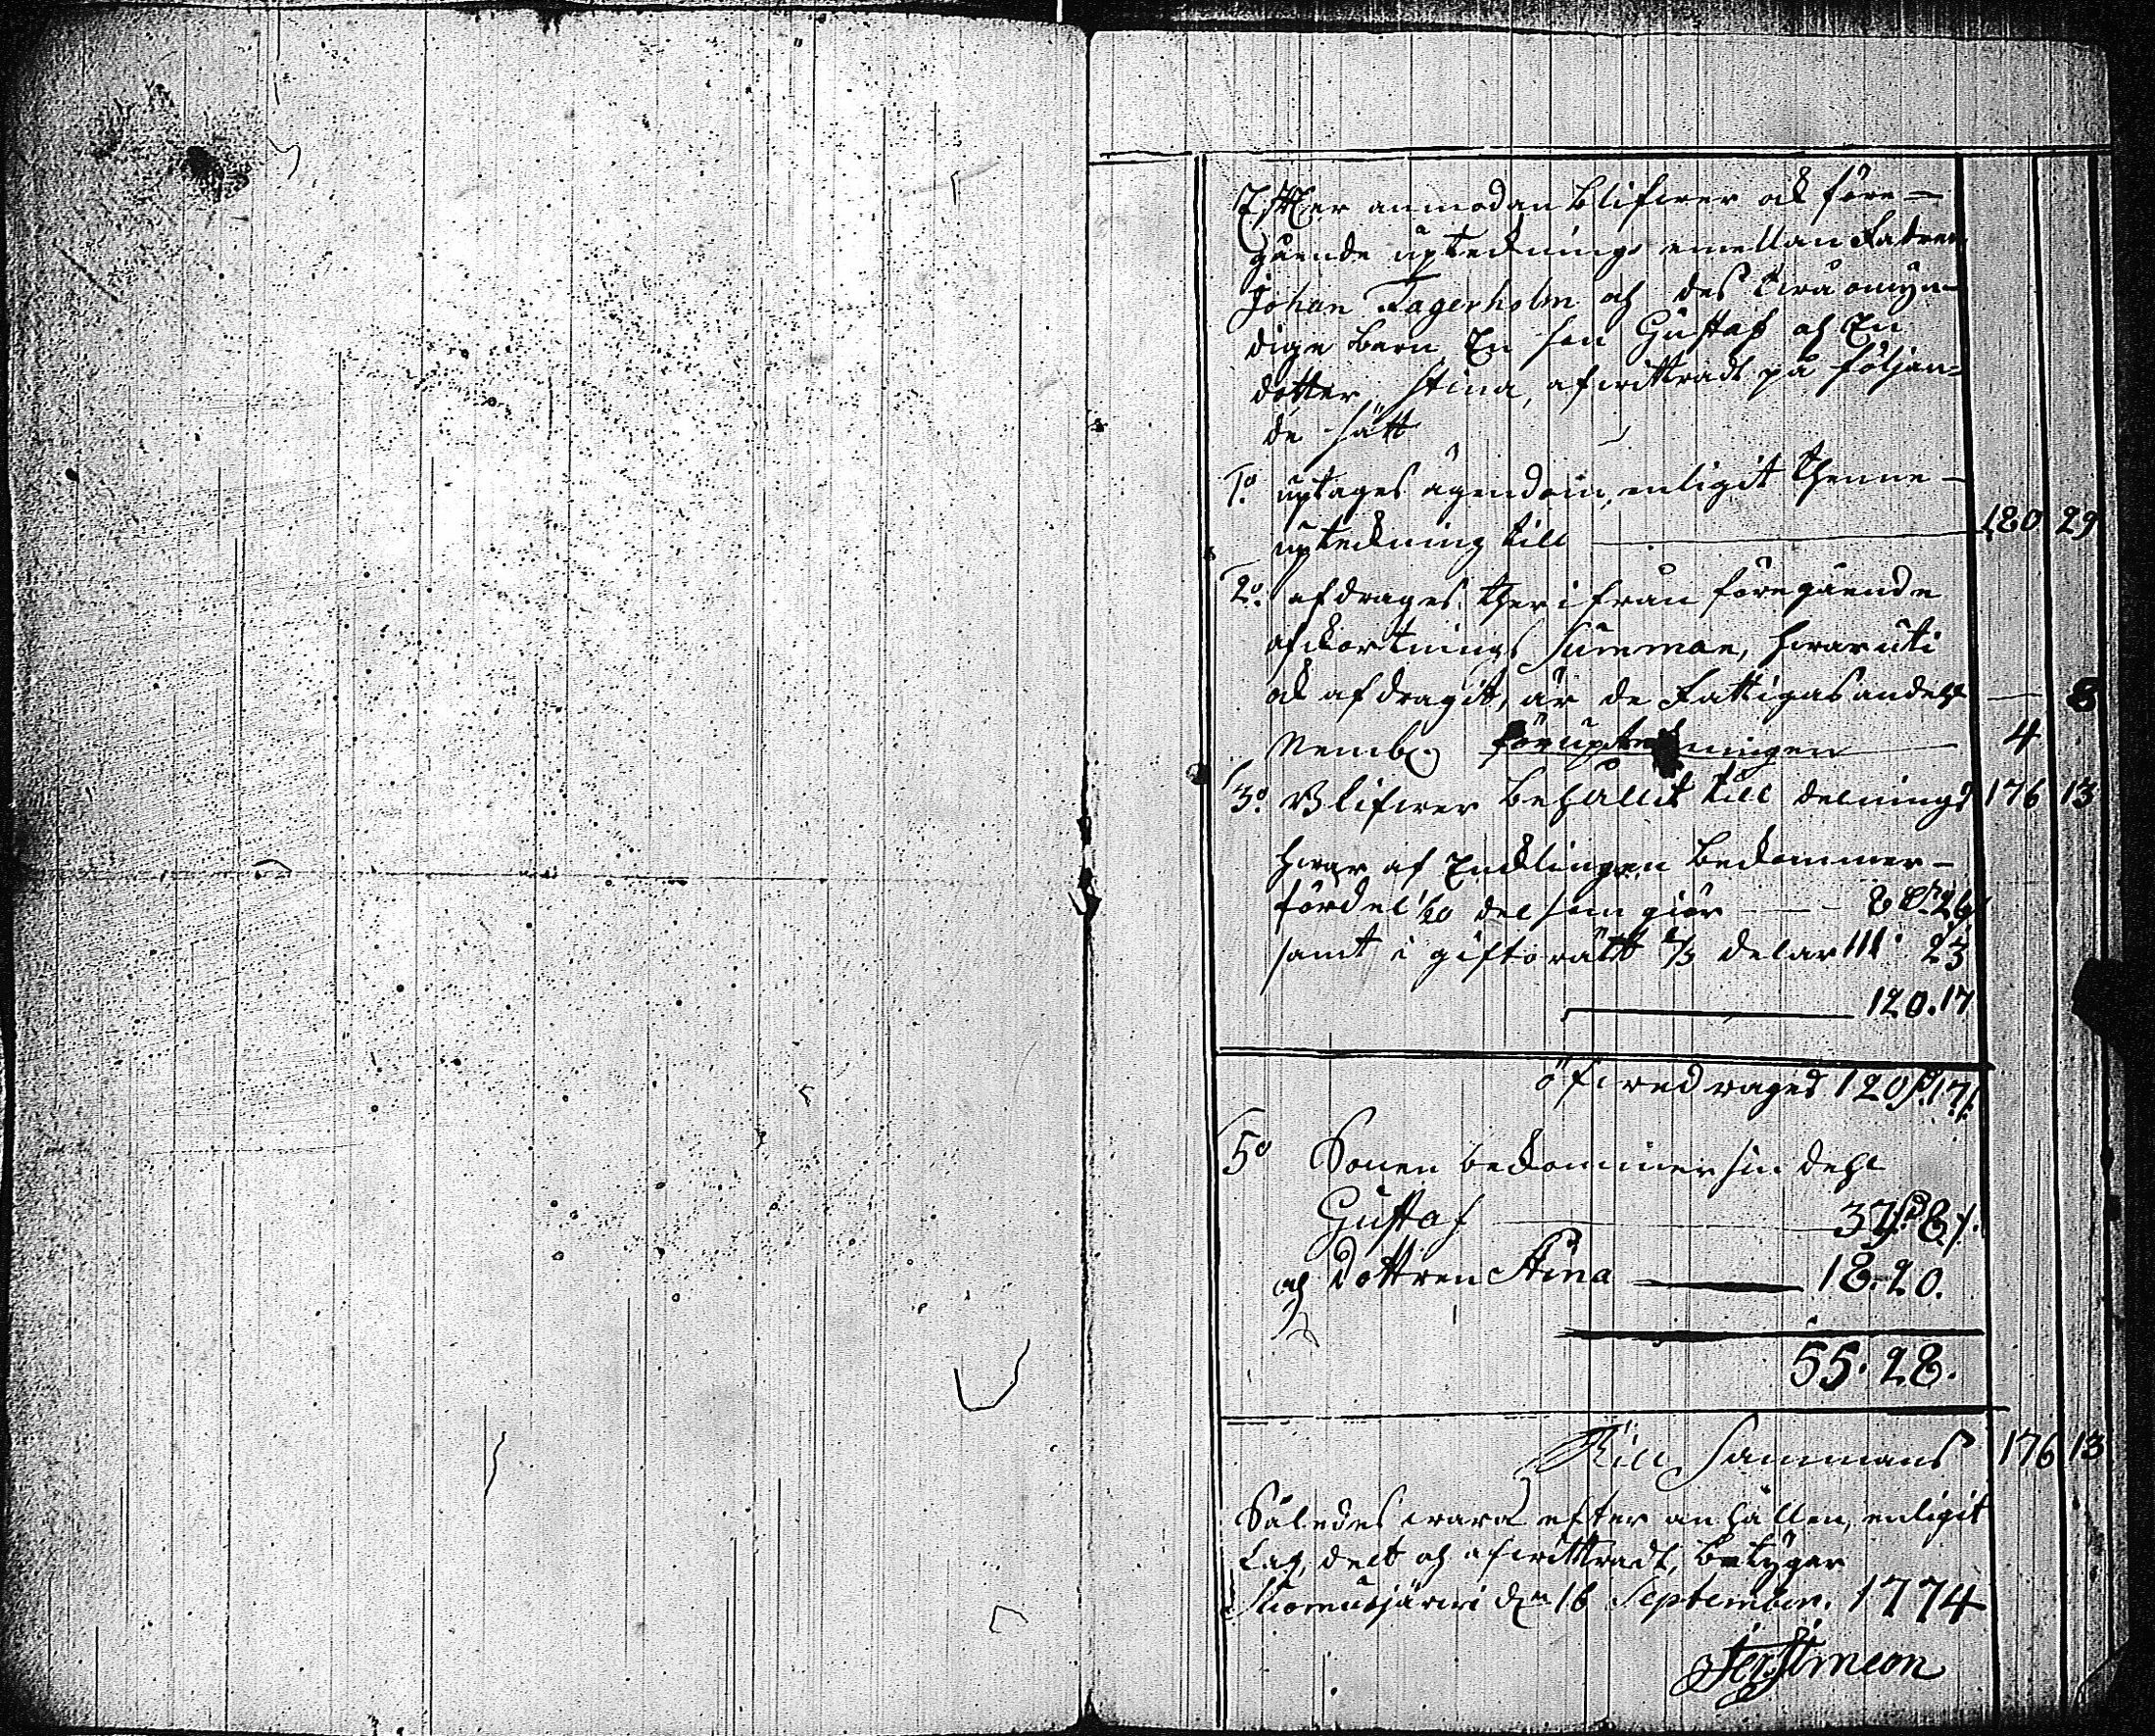 Efter anmodan blifwer ock före-
gående upteckning emellan Fadren
Johan Fagerholm och des twå omyn-
dige barn En son Gustaf och En
dotter Stina, afwittradt på följan-
de sätt
1o. uptages ägendom, enligit thenne
upteckning till 180 29
2o. afdrages ther ifrån föregående
afkortnings Summan, hwaruti
ock afdragit, är de Fattigas andehl — 8
Nembl. för upteckningen 4
3o. Blifwer behållit till delnings 176 13
hwar af Encklingen bekommer
fördel 1/20 del som giör — 8 26
samt i giftorätt 2/3 delar 111. 23
120. 17
öfwerdrages 120 17
5o Sonen bekommer sin dehl
Gustaf 37 8
och Dottren Stina 18. 20.
55. 28.
Till Sammans 176 13
Således wara efter anhållen, enligit
Lag, delt och afwittradt, betygar
Suomusjärwi den 16 September. 1774
Simeon